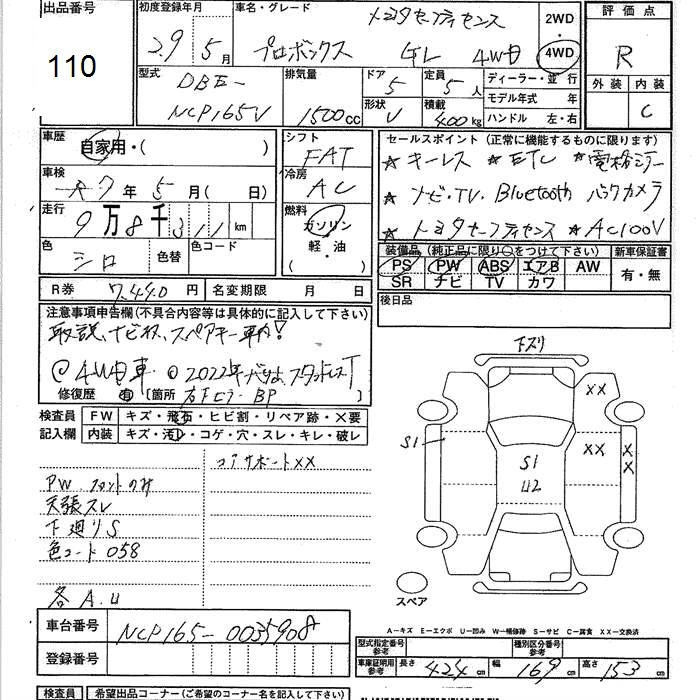 出品番号
110
初度登録年月
29年5月
車名・グレード
トヨタセーフティセンス
プロボックス GL 4WD
2WD
・
4WD
評価点
R
外装 内装
C
型式
DBE-
NCP165V
排気量
1500cc
ドア 5
形状 V
定員 5人
積載 400kg
ディーラー・並行
モデル年式 年
ハンドル 左・右
車歴
自家用・( )
車検
R7年5月( 日)
走行
9万8千311km
色 シロ
色替
色コード
シフト
FAT
冷房
AC
燃料
ガソリン
軽・油
( )
セールスポイント(正常に機能するものに限ります)
★キーレス ★ETC ★電格ミラー
★ナビ・TV・Bluetooth バックカメラ
★トヨタセーフティセンス ★AC100V
装備品(純正品に限り○をつけて下さい)
PS PW ABS エアB AW
SR ナビ TV カワ
新車保証書
有・無
R券 7,440円
名変期限 月 日
後日品
注意事項申告欄(不具合内容等は具体的に記入して下さい)
取説、ナビ取、スペアキー車内!
@4WD車 @2022年
修復歴 有 [箇所 右Fピラー BP ]
検査員
記入欄
FW キズ・飛石・ヒビ割・リペア跡・X要
内装 キズ・汚レ・コゲ・穴・スレ・キレ・破レ
コアサポートXX
PW フロントのみ
天張スレ
下廻りS
色コード 058
各A.U
下スリ
XX
XX
XX
S1
S1
U2
スペア
A-キズ E-エクボ U-凹み W-補修跡 S-サビ C-腐食 XX-交換済
車台番号 NCP165-0035908
登録番号
型式指定番号
参考
種別区分番号
参考
車庫証明用
参考
長さ 424cm 幅 169cm 高さ 153cm
検査員
希望出品コーナー(ご希望のコーナー名を記入下さい)